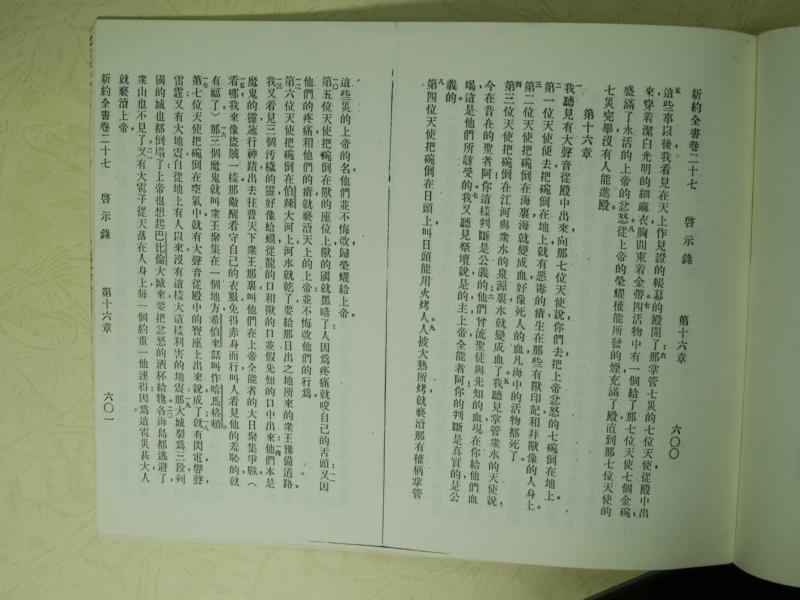 新約全書卷二十七 啓示錄 第十六章 六〇〇
五這些事以後我看見在天上作見證的帳幕的殿開了六那掌管七災的七位天使從殿中出
來穿着潔白光明的細麻衣胸間束着金帶七四活物中有一個給了那七位天使七個金碗
盛滿了永活的上帝的忿怒八從上帝的榮耀權能所發的煙充滿了殿直到那七位天使的
七災完畢沒有人能進殿
第十六章
一我聽見有大聲音從殿中出來向那七位天使說你們去把上帝忿怒的七碗倒在地上
二第一位天使便去把碗倒在地上就有惡毒的瘡生在那些有獸印記和拜獸像的人身上
三第二位天使把碗倒在海裏海就變成血好像死人的血凡海中的活物都死了
四第三位天使把碗倒在江河與衆水的泉源裏水就變成血了五我聽見掌管衆水的天使說
今在昔在的聖者阿你這樣判斷是公義的六他們曾流聖徒與先知的血現在你給他們血
喝這是他們所該受的七我又聽見祭壇說是的主上帝全能者阿你的判斷是眞實的是公
義的
八第四位天使把碗倒在日頭上叫日頭能用火烤人九人被大熱所烤就褻瀆那有權柄掌管
這些災的上帝的名他們並不悔改歸榮耀給上帝
一〇第五位天使把碗倒在獸的座位上獸的國就黑暗了人因爲疼痛就咬自己的舌頭一一又因
他們的疼痛和他們的瘡就褻瀆天上的上帝並不悔改他們的行爲
一二第六位天使把碗倒在伯辣大河上河水就乾了要給那日出之地所來的衆王豫備道路
一三我又看見三個汚穢的靈好像蛤蟆從龍的口和獸的口並假先知的口中出來一四他們本是
魔鬼的靈施行神蹟出去往普天下衆王那裏叫他們在上帝全能者的大日聚集爭戰(一五
看哪我來像盜賊一樣那儆醒看守自己的衣服免得赤身而行叫人看見他的羞恥的就
有福了)一六那三個魔鬼就叫衆王聚集在一個地方希伯來話叫作哈馬格頓
一七第七位天使把碗倒在空氣中就有大聲音從殿中的寶座上出來說成了一八就有閃電響聲
雷霆又有大地震自從地上有人以來沒有這樣大這樣利害的地震一九那大城裂爲三段列
國的城也都倒塌了上帝也想起巴比倫大城來要把忿怒的酒杯給牠二〇各海島都逃避了
衆山也不見了二一又有大雹子從天落在人身上每一個約重一他連得因爲這雹災甚大人
就褻瀆上帝
新約全書卷二十七 啓示錄 第十六章 六〇一